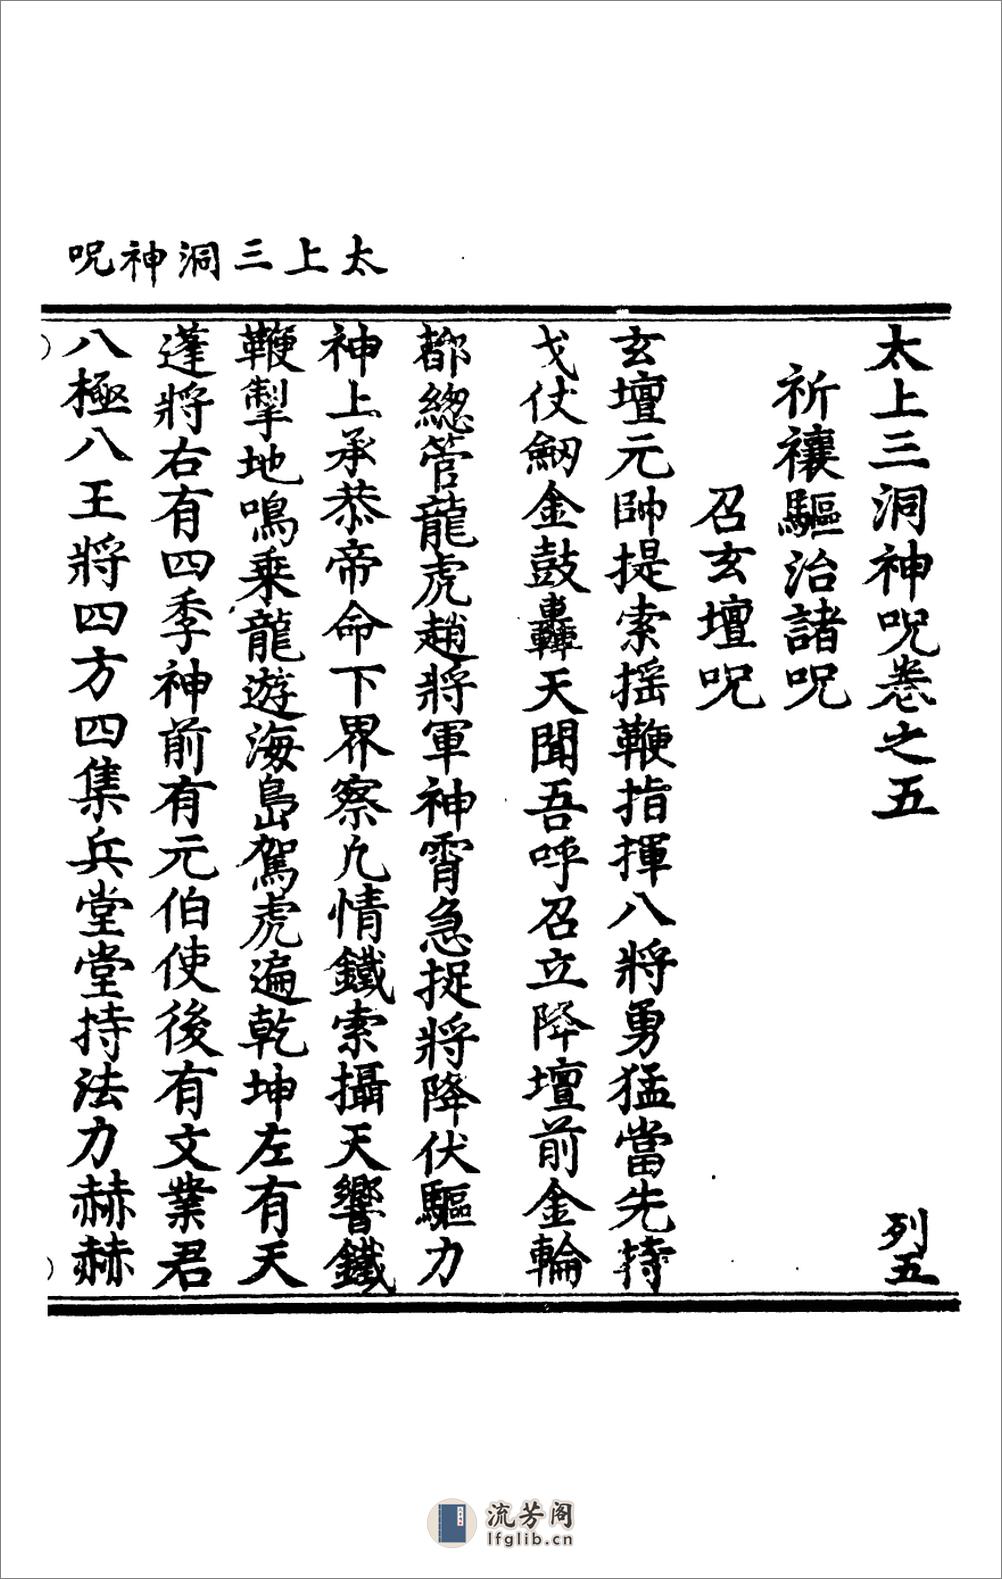 太上三洞神呪
太上三洞神呪卷之五 列五
祈禳驅治諸呪
召玄壇呪
玄壇元帥提索揺鞭指揮八將勇猛當先持
戈仗劒金鼓轟天聞吾呼召立降壇前金輪
都總管龍虎趙將軍神霄急捉將降伏驅力
神上承恭帝命下界察凢情鐵索攝天響鐵
鞭掣地鳴乗龍遊海島駕虎遍乾坤左有天
蓬將右有四季神前有元伯使後有文業君
八極八王將四方四集兵堂堂持法力赫赫
流芳阁
lfglib.cn